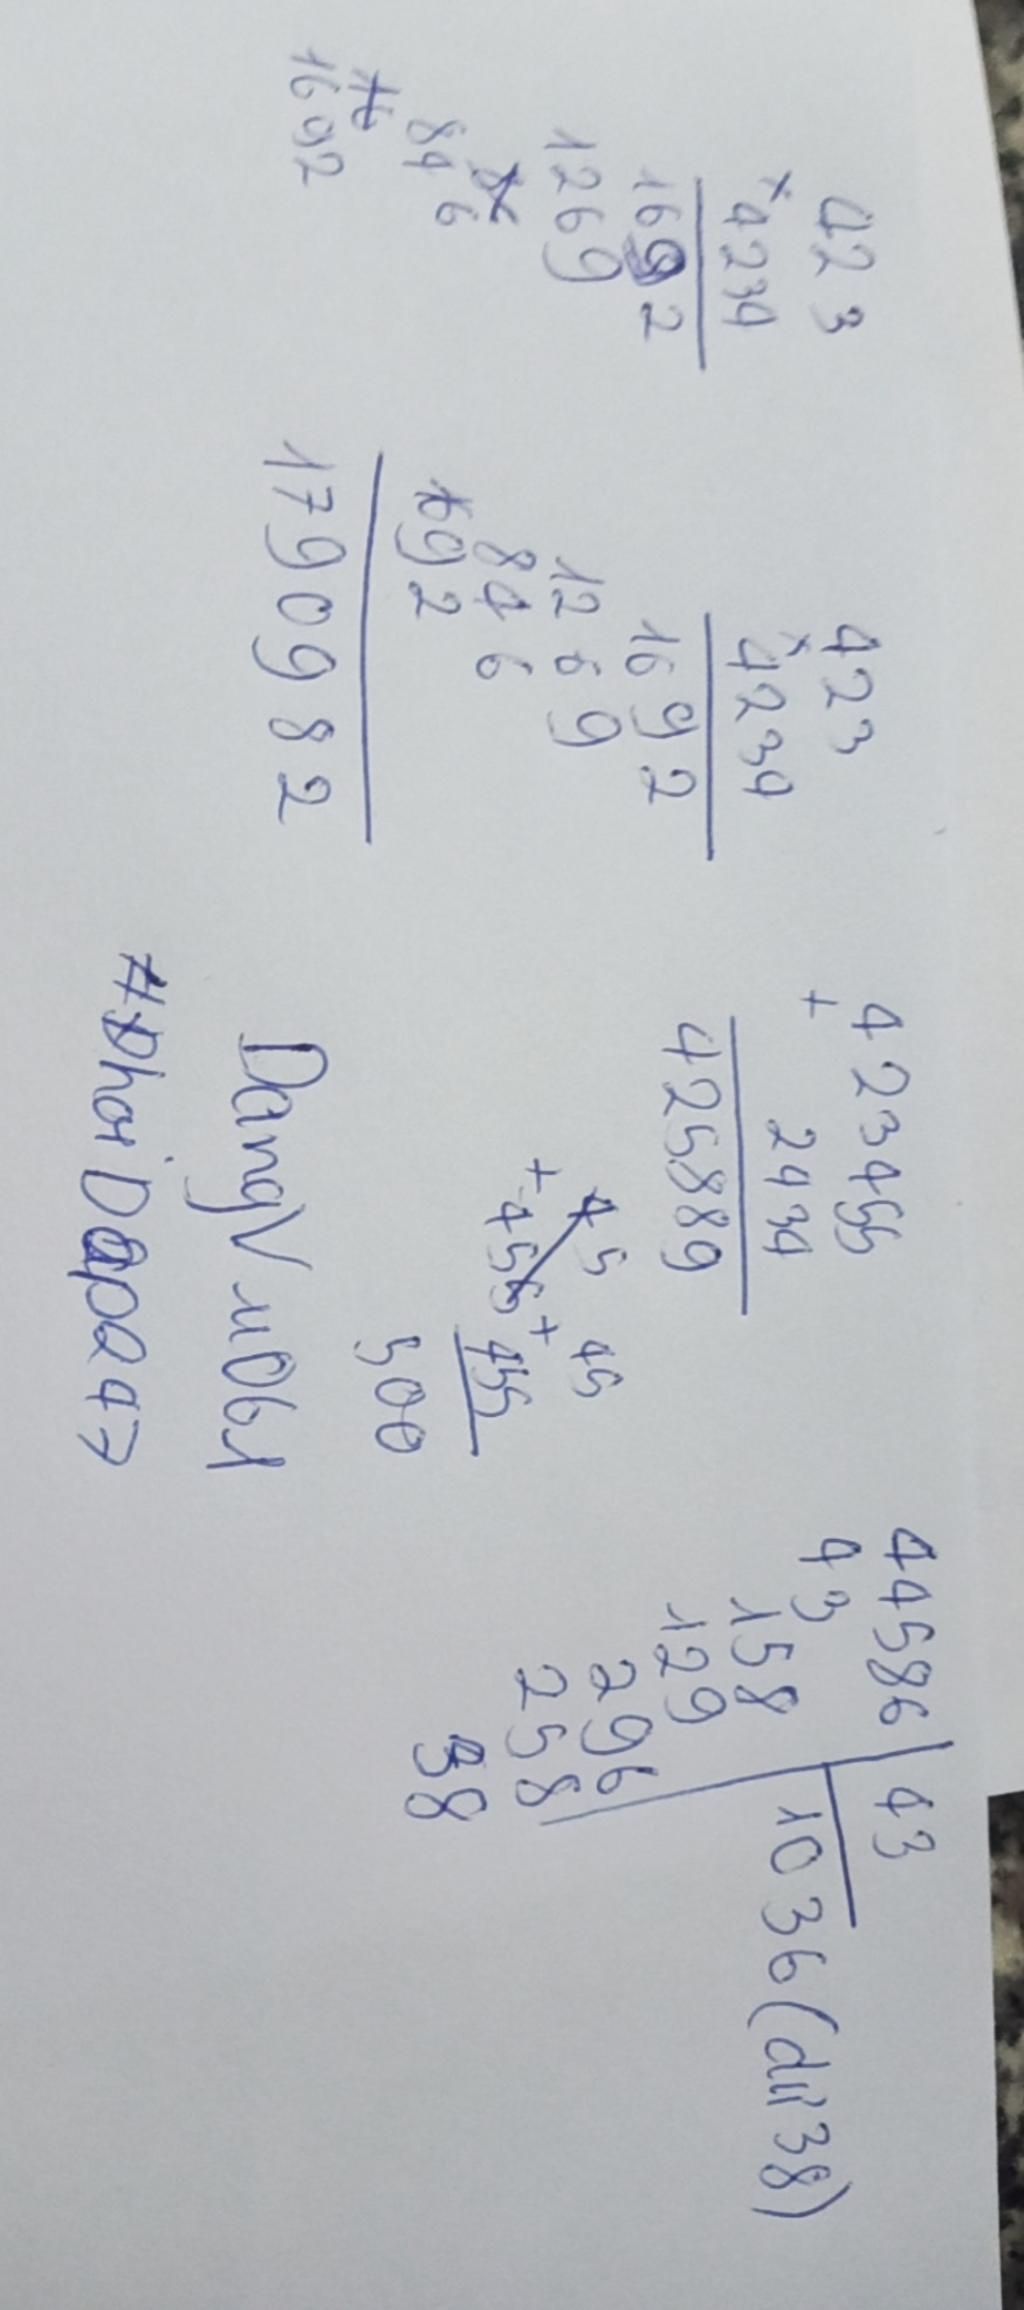 423
× 4234
1692
1269
846
1692
423
× 4234
1692
1269
846
1692
1790982
423455
+ 2434
425889
45
+ 455
45
+ 455
500
44586 | 43
43
1036 (dư 38)
158
129
296
258
38